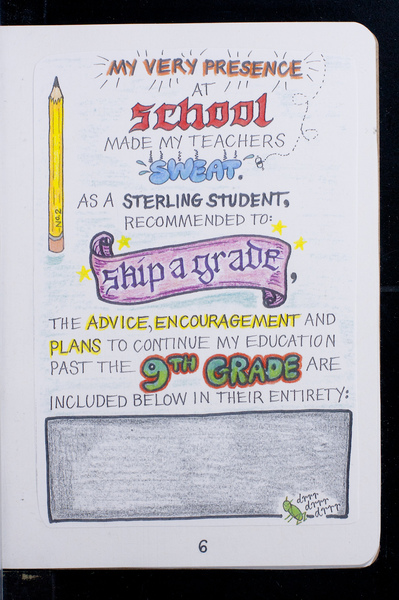 MY VERY PRESENCE
AT
school
MADE MY TEACHERS
SWEAT.
AS A STERLING STUDENT,
RECOMMENDED TO:
skip a grade,
THE ADVICE, ENCOURAGEMENT AND
PLANS TO CONTINUE MY EDUCATION
PAST THE 9TH GRADE ARE
INCLUDED BELOW IN THEIR ENTIRETY:
drrr
drrr
drrr
6
No 2